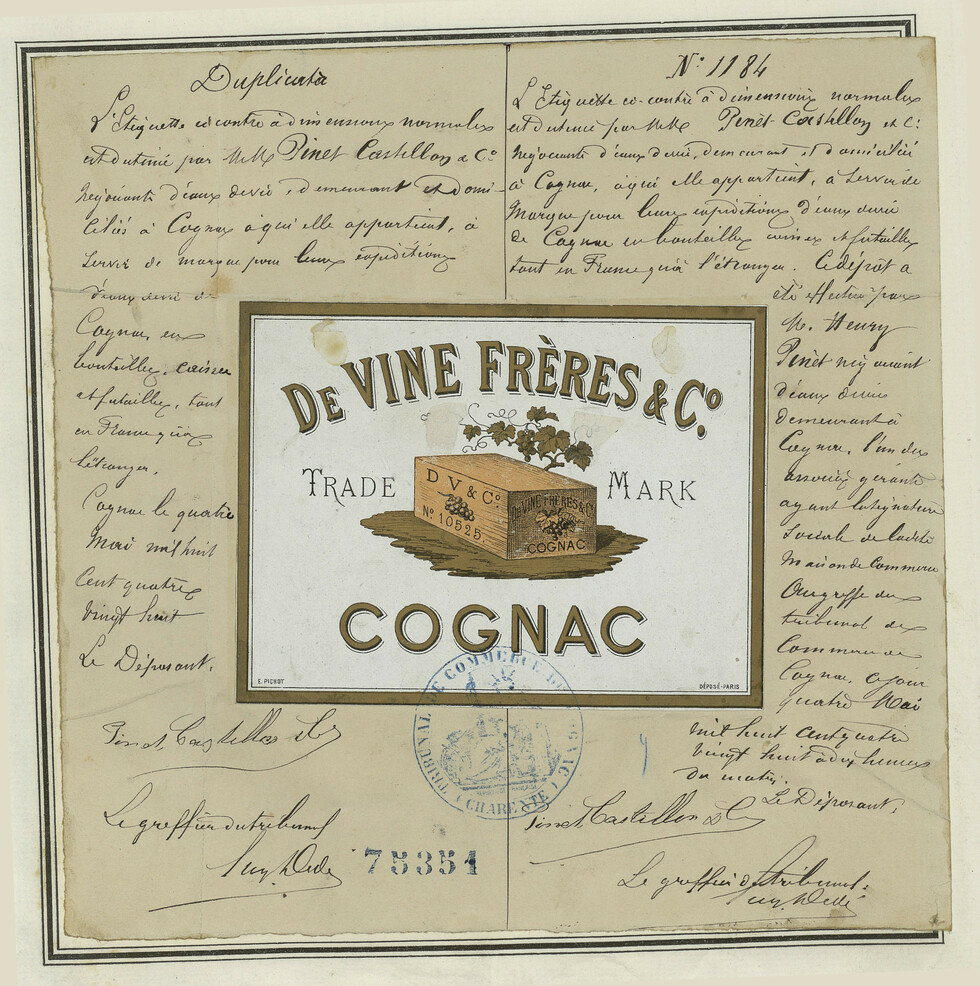 Duplicata
L'Etiquette ci contre à dimensions normales
est destinée par MM Pinet Castillon & Cº
négociants d'eaux de vie, demeurant et domi-
ciliés à Cognac à qui elle appartient, à
servir de marque pour leurs expéditions
d'eaux de vie de
Cognac en
bouteilles, caisses
et futailles, tant
en France qu'à
l'étranger.
Cognac le quatre
Mai mil huit
cent quatre
vingt huit
Le Déposant,
Pinet Castillon & Cº
Le greffier du tribunal
75351
Nº 1184
L'Etiquette ci-contre à dimensions normales
est destinée par MM Pinet-Castillon et Cº
négociants d'eaux de vie, demeurant et domiciliés
à Cognac, à qui elle appartient, à servir de
Marque pour leurs expéditions d'eaux de vie
de Cognac en bouteilles caisses et futailles
tant en France qu'à l'étranger. Ce dépôt a
été effectué par
M. Henry
Pinet négociant
d'eaux de vie
demeurant à
Cognac, l'un des
associés gérants
ayant la signature
sociale de ladite
Maison de Commerce
Au greffe du
tribunal de
Commerce de
Cognac, ce jour
quatre Mai
mil huit cent quatre
vingt huit à dix heures
du matin.
Le Déposant,
Pinet Castillon & Cº
Le greffier du tribunal
DE VINE FRÈRES & Cº
TRADE MARK
D V & Cº
Nº 10525
DE VINE FRÈRES & Cº
COGNAC
COGNAC
E. PICHOT
DÉPOSÉ-PARIS
TRIBUNAL DE COMMERCE DE COGNAC
(CHARENTE)